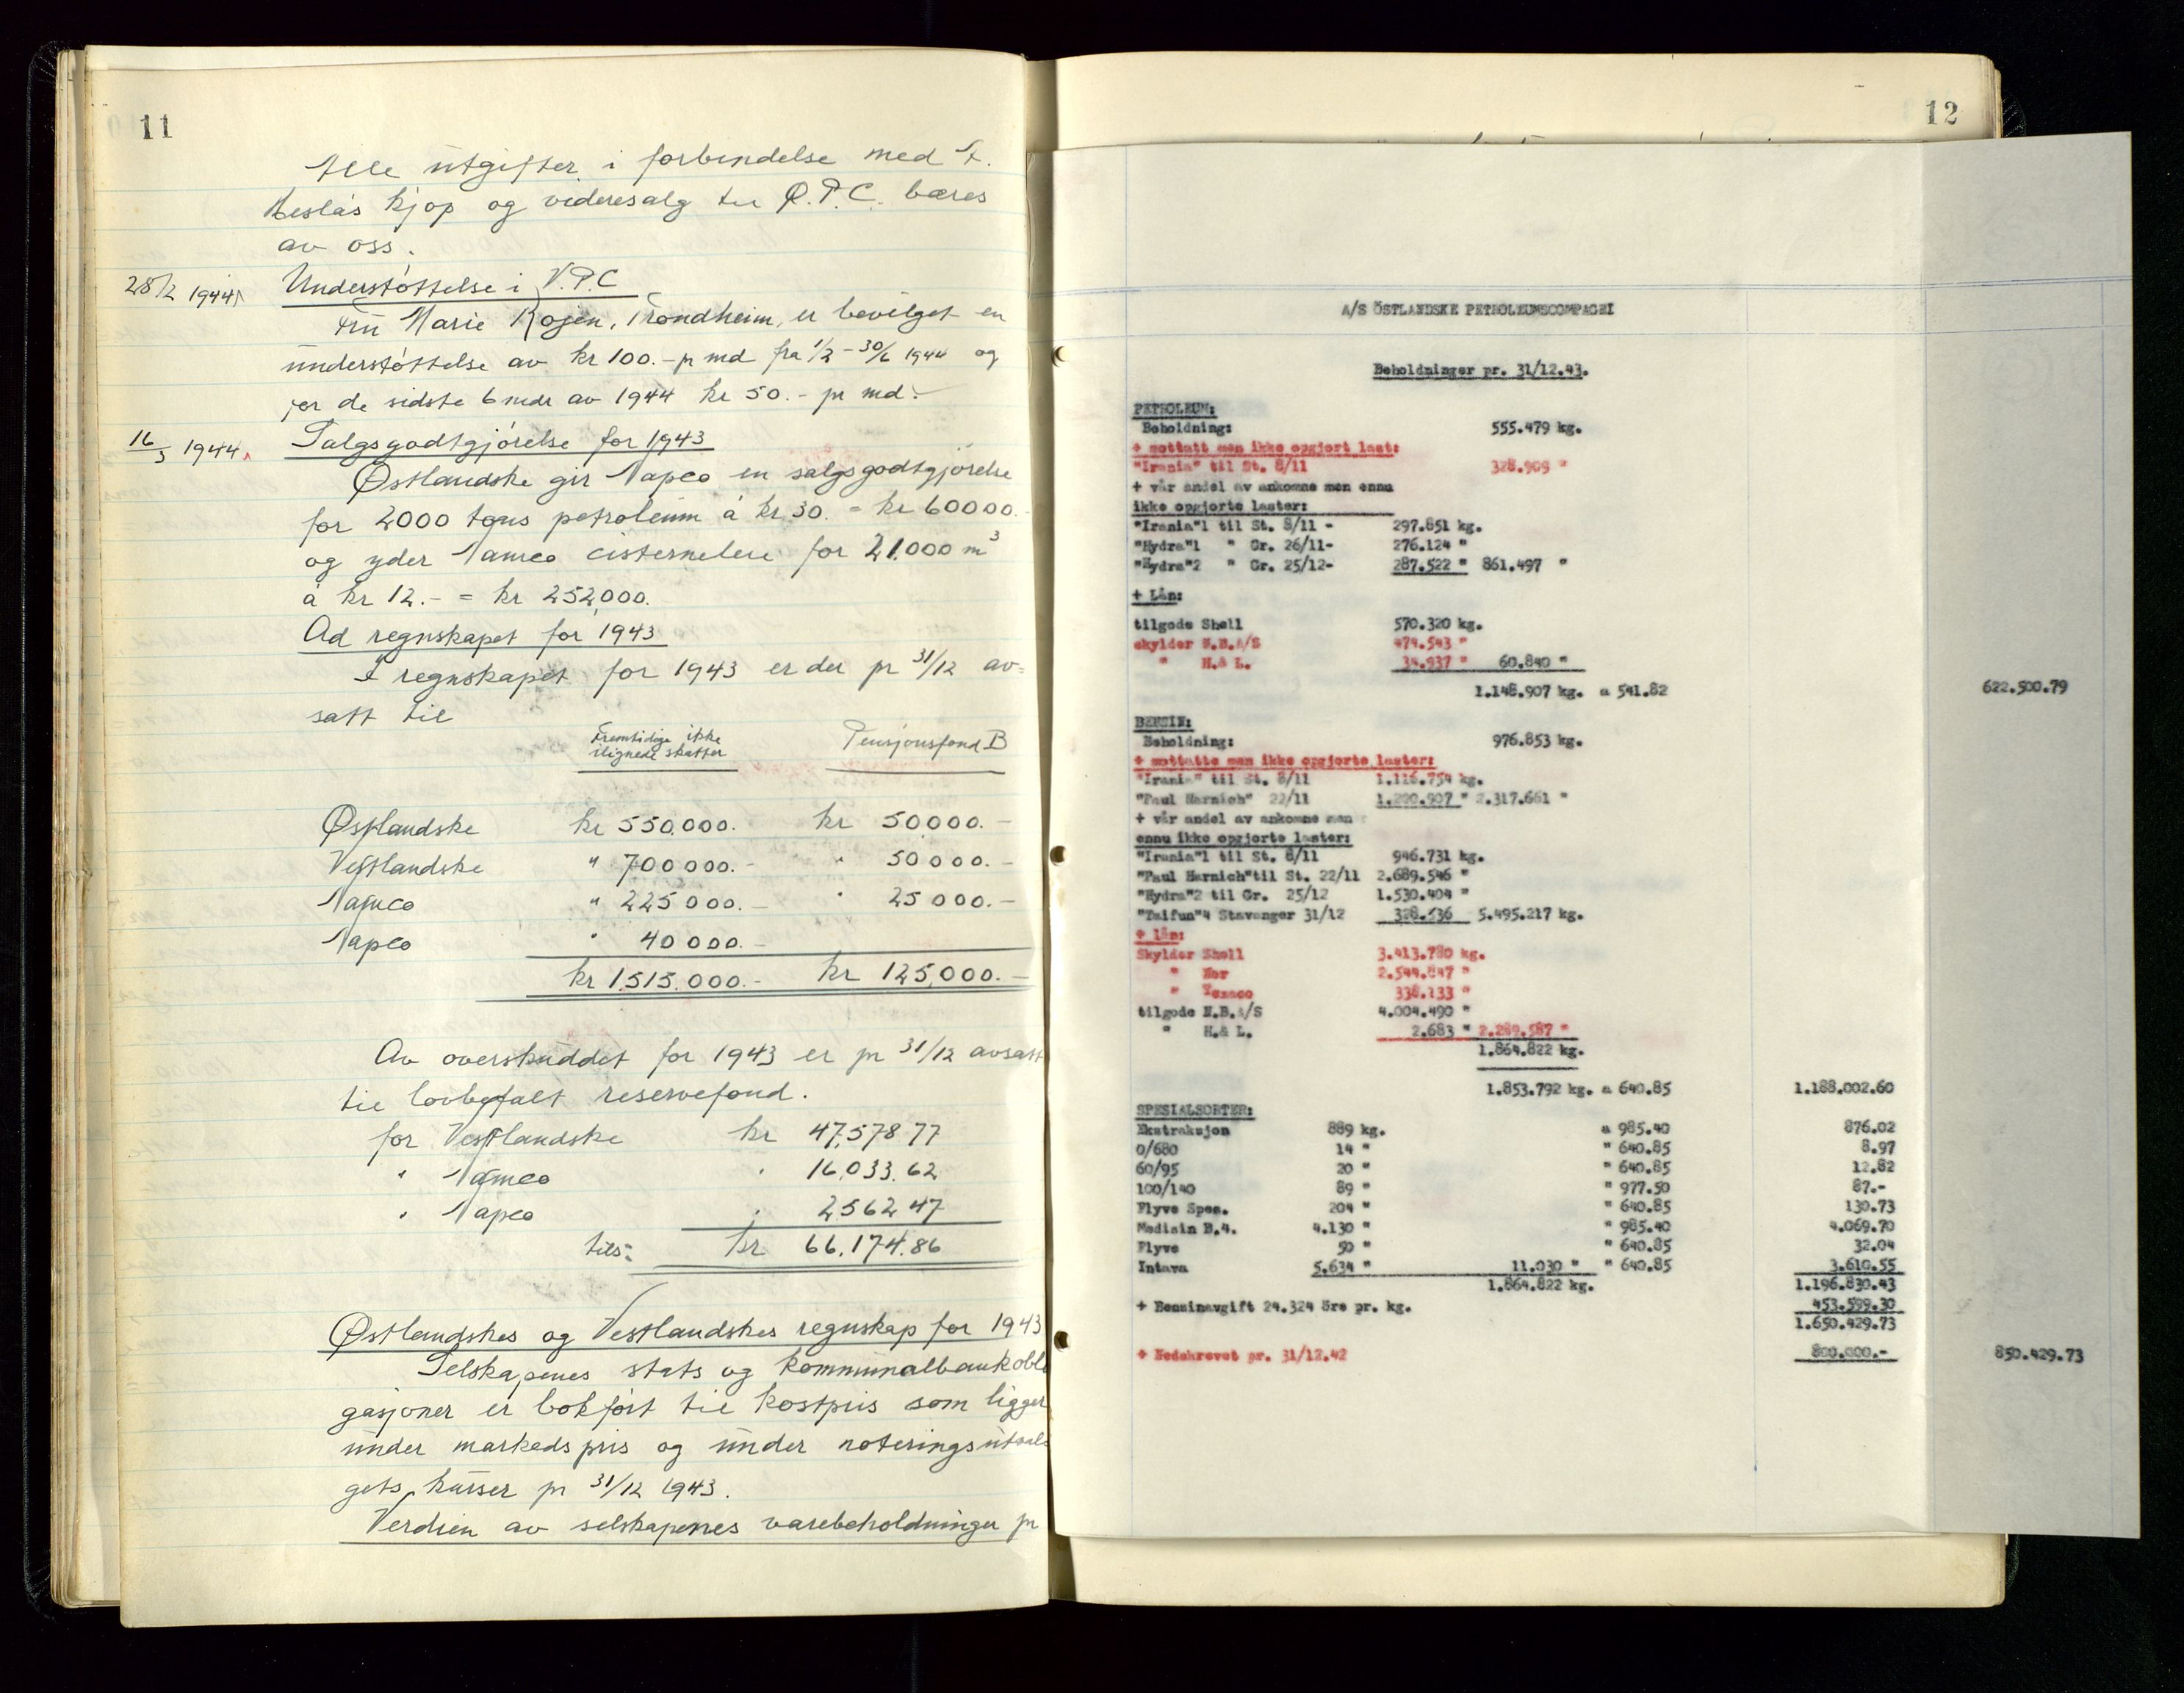 11
Alle utgifter i forbindelse med A.
kjøp og videresalg til Ø.P.C. bæres
av oss.
28/2 1944 Understøttelse i V.P.C
Fru Marie Rojen, Trondheim, er bevilget en
understøttelse av kr 100.- pr md fra 1/2 - 30/6 1944 og
for de sidste 6 mdr av 1944 kr 50.- pr md.-
16/3 1944. Salgsgodtgjørelse for 1943
Østlandske gir Napco en salgsgodtgjørelse
for 2000 tons petroleum á kr 30. = kr 60000.-
og yder Namco cisterneleie for 21.000 m3
á kr 12.- = kr 252,000.
Ad regnskapet for 1943
I regnskapet for 1943 er der pr 31/12 av=
satt til
Fremtidige ikke
ilignede skatter Pensjonsfond B
Østlandske kr 550.000.- kr 50.000.-
Vestlandske " 700000.- " 50000.-
Namco " 225000.- " 25000.-
Napco " 40000.-
kr 1.515.000.- kr 125,000.-
Av overskuddet for 1943 er pr 31/12 avsatt
til lovbefalt reservefond.
for Vestlandske kr 47.578 77
" Namco " 16.033.62
" Napco " 2562 47
tils: kr 66.174.86
Østlandskes og Vestlandskes regnskap for 1943
Selskapenes stats og kommunalbankobli
gasjoner er bokført til kostpris som ligger
under markedspris og under noteringsutval
gets kurser pr 31/12 1943.
Verdien av selskapenes varebeholdninger pr
12
A/S ÖSTLANDSKE PETROLEUMSCOMPAGNI
Beholdninger pr. 31/12.43.
PETROLEUM:
Beholdning: 555.479 kg.
+ mottatt men ikke opgjort last:
"Irania" til St. 8/11 328.909 "
+ vår andel av ankomne men ennu
ikke opgjorte laster:
"Irania"1 til St. 8/11 - 297.851 kg.
"Hydra"1 " Gr. 26/11- 276.124 "
"Hydra"2 " Gr. 25/12- 287.522 " 861.497 "
+ Lån:
tilgode Shell 570.320 kg.
skylder N.B.A/S 474.543 "
" H.& L. 34.937 " 60.840 "
1.148.907 kg. a 541.82 622.500.79
BENSIN:
Beholdning: 976.853 kg.
+ mottatte men ikke opgjorte laster:
"Irania" til St. 8/11 1.116.754 kg.
"Paul Harnich" 22/11 1.200.907 " 2.317.661 "
+ vår andel av ankomne men
ennu ikke opgjorte laster:
"Irania"1 til St. 8/11 946.731 kg.
"Paul Harnich"til St. 22/11 2.689.546 "
"Hydra"2 til Gr. 25/12 1.530.404 "
"Taifun"4 Stavanger 31/12 328.536 5.495.217 kg.
+ lån:
Skylder Shell 3.413.780 kg.
" Nor 2.544.847 "
" Texaco 338.133 "
tilgode N.B.A/S 4.004.490 "
" H.& L. 2.683 " 2.289.587 "
1.864.822 kg.
1.853.792 kg. a 640.85 1.188.002.60
SPESIALSORTER:
Ekstraksjon 889 kg. a 985.40 876.02
0/680 14 " " 640.85 8.97
60/95 20 " " 640.85 12.82
100/140 89 " " 977.50 87.-
Flyve Spes. 204 " " 640.85 130.73
Medisin B.4. 4.130 " " 985.40 4.069.70
Flyve 50 " " 640.85 32.04
Intava 5.634 " 11.030 " " 640.85 3.610.55
1.864.822 kg. 1.196.830.43
+ Bensinavgift 24.324 öre pr. kg. 453.599.30
1.650.429.73
+ Nedskrevet pr. 31/12.42 800.000.- 850.429.73